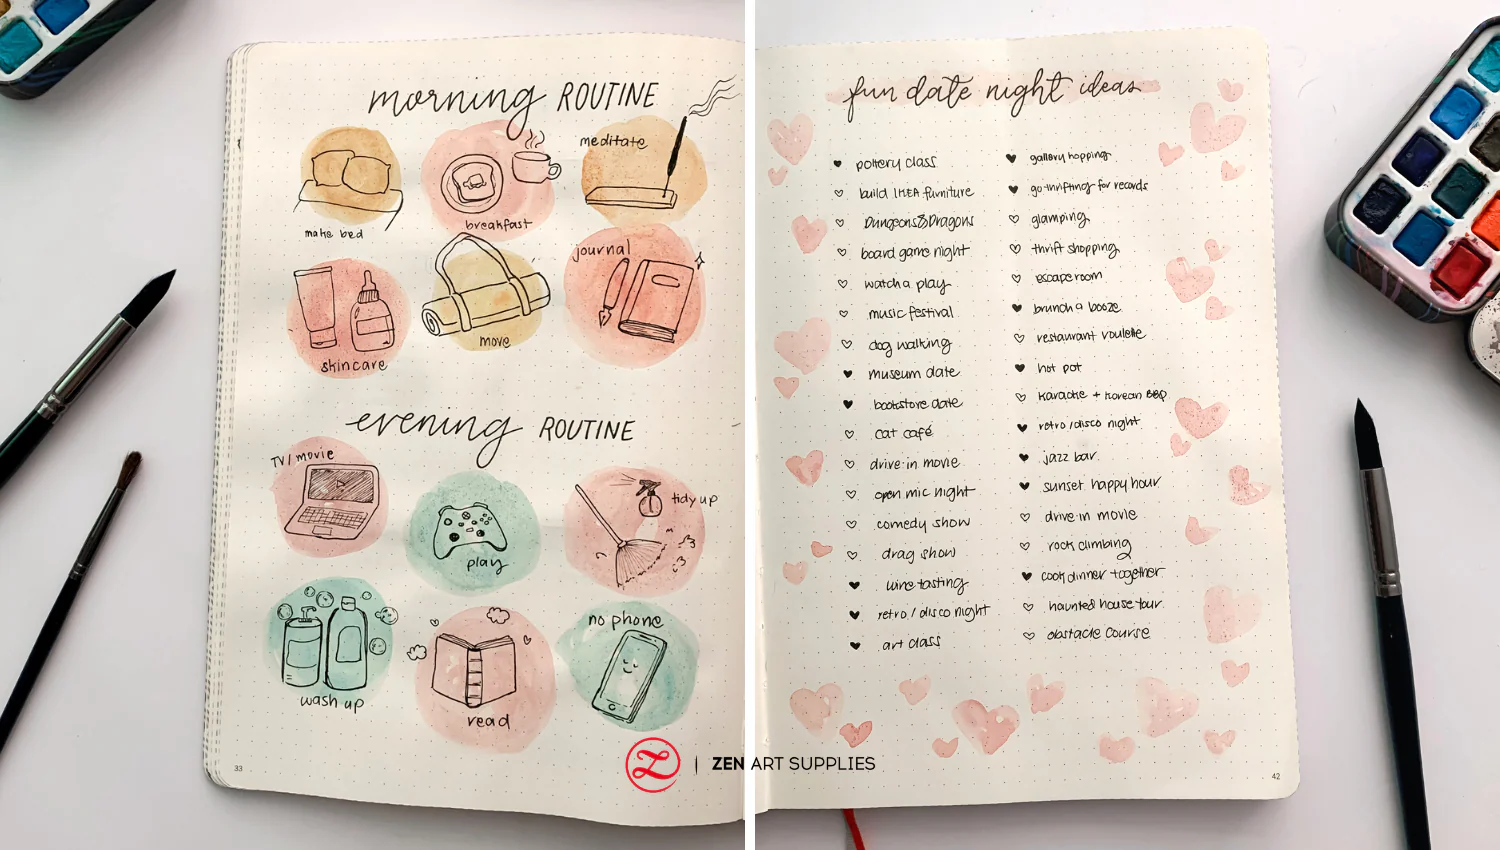 morning ROUTINE
make bed
breakfast
meditate
skincare
move
journal
evening ROUTINE
TV / movie
play
tidy up
wash up
read
no phone
33
fun date night ideas
pottery class
build IKEA furniture
Dungeons&Dragons
board game night
watch a play
music festival
dog walking
museum date
bookstore date
cat café
drive-in movie
open mic night
comedy show
drag show
wine tasting
retro / disco night
art class
gallery hopping
go thrifting for records
glamping
thrift shopping
escape room
brunch a booze
restaurant roulette
hot pot
karaoke + korean BBQ
retro / disco night
jazz bar
sunset happy hour
drive-in movie
rock climbing
cook dinner together
haunted house tour
obstacle course
42
Z | ZEN ART SUPPLIES